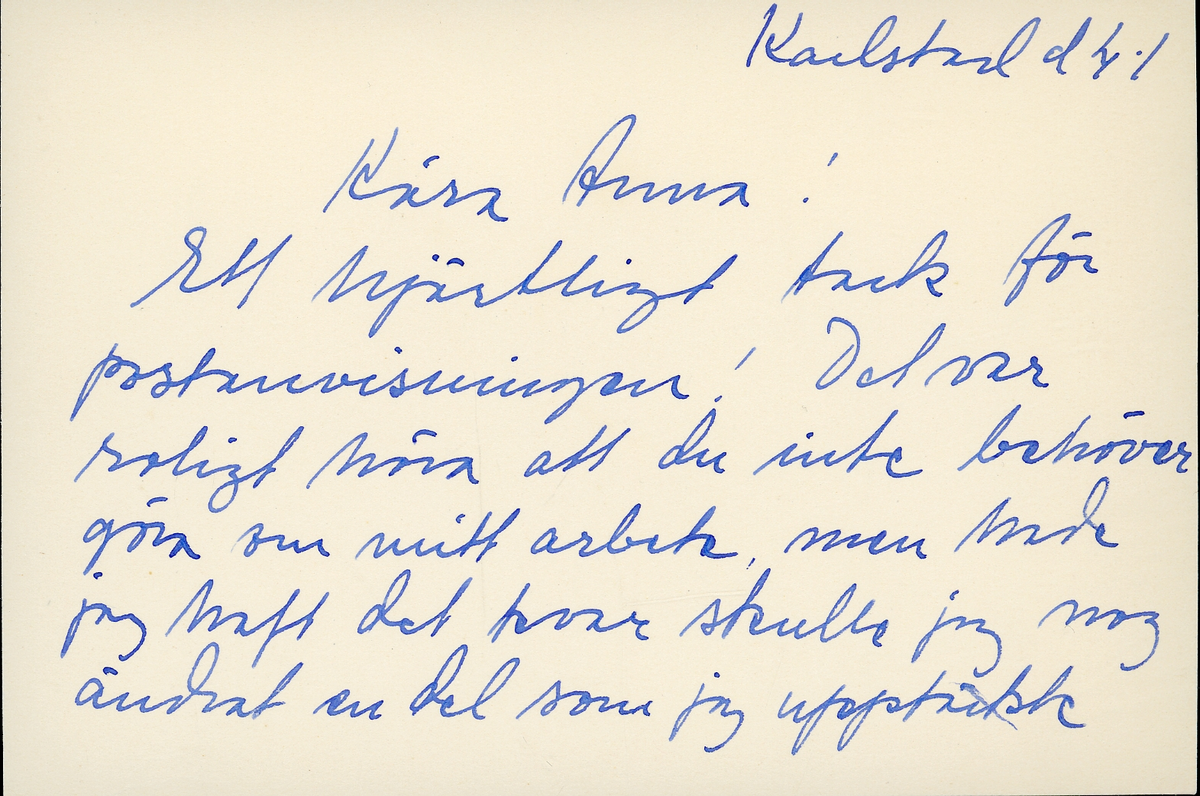 Karlstad d 4.1
Kära Anna!
Ett hjärtligt tack för
postanvisningen! Det var
roligt höra att du inte behöver
göra om mitt arbete, men hade
jag haft det kvar skulle jag nog
ändrat en del som jag upptäckte